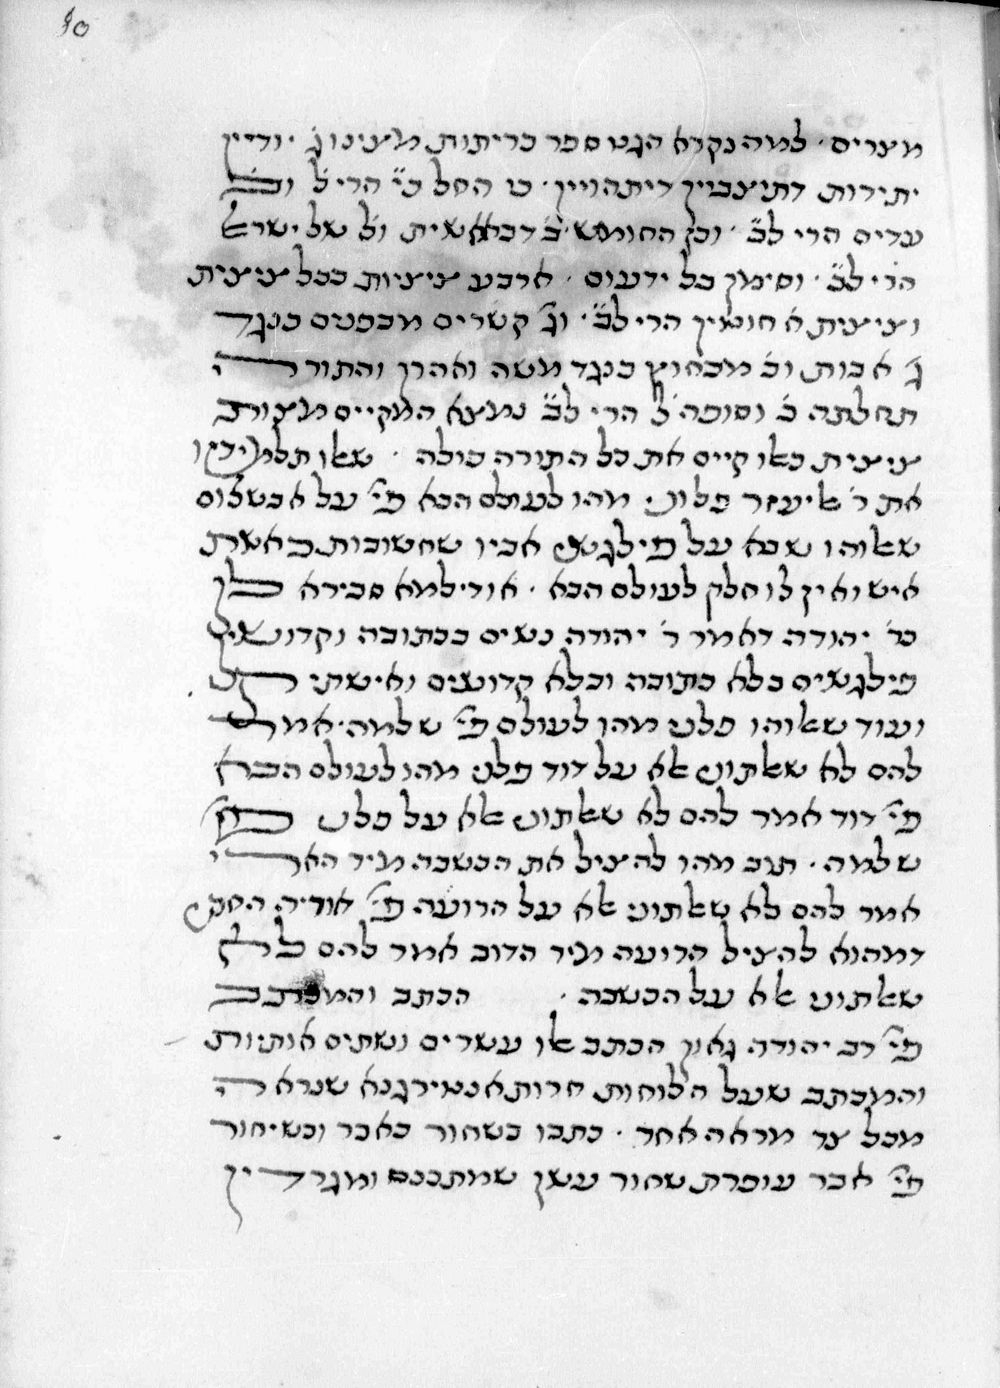 90
מצרים · למה נקרא הגט ספר כריתות מצינו ג׳ · ודיין
יתירות דתיצביין דיתהוויין · כו הסל כ״ הרי ל׳ וכל
עדים הרי ל״ב · וכן החומש ב׳ דבראשית ול׳ של ישראל
הרי ל״ב · וסימן כל ידעום · ארבע ציציות בכל ציצית
וציצית א חוטין הרי ל״ב · וג׳ קשרים מבפנים כנגד
ג׳ אבות וב׳ מבחוץ כנגד משה ואהרן והתורה
תחלתה ב׳ וסופה ל׳ הרי ל״ב נמצא המקיים מצות
ציצית כאלו קיים את כל התורה כולה · שאלו תלמידיו
את ר׳ אליעזר פלוני מהו לעולם הבא פי׳ על אבשלום
שאלוהו שבא על פילגש אביו שחשובות כאשת
איש ואין לו חלק לעולם הבא · או דילמא סבירא לן
כר׳ יהודה דאמר ר׳ יהודה נשים בכתובה וקדושין
פילגשים בלא כתובה ובלא קדושים ואישתרי
ועוד שאלוהו פלוני מהו לעולם פי׳ שלמה · אמר
להם לא שאלתוני אלא על דוד פלוני מהו לעולם הבא
פי׳ דוד אמר להם לא שאלתוני אלא על פלוני
שלמה · תוב מהו להציל את הכבשה מיד הארי
אמר להם לא שאלתוני אלא על הרועה פי׳ אוריה
דמהוא להציל הרועה מיד הדוב אמר להם לא
שאלתוני אלא על הכבשה · הכתב והמכתב
פי׳ רב יהודה גאון הכתב אלו עשרים ושתים אותיות
והמכתב שעל הלוחות חרות אנטירגנא שנראה
מכל צד מראה אחד · כתבו בשחור באבר ובשיחור
פי׳ אבר עופרת שחור עשן שמתכנס ומגרדין